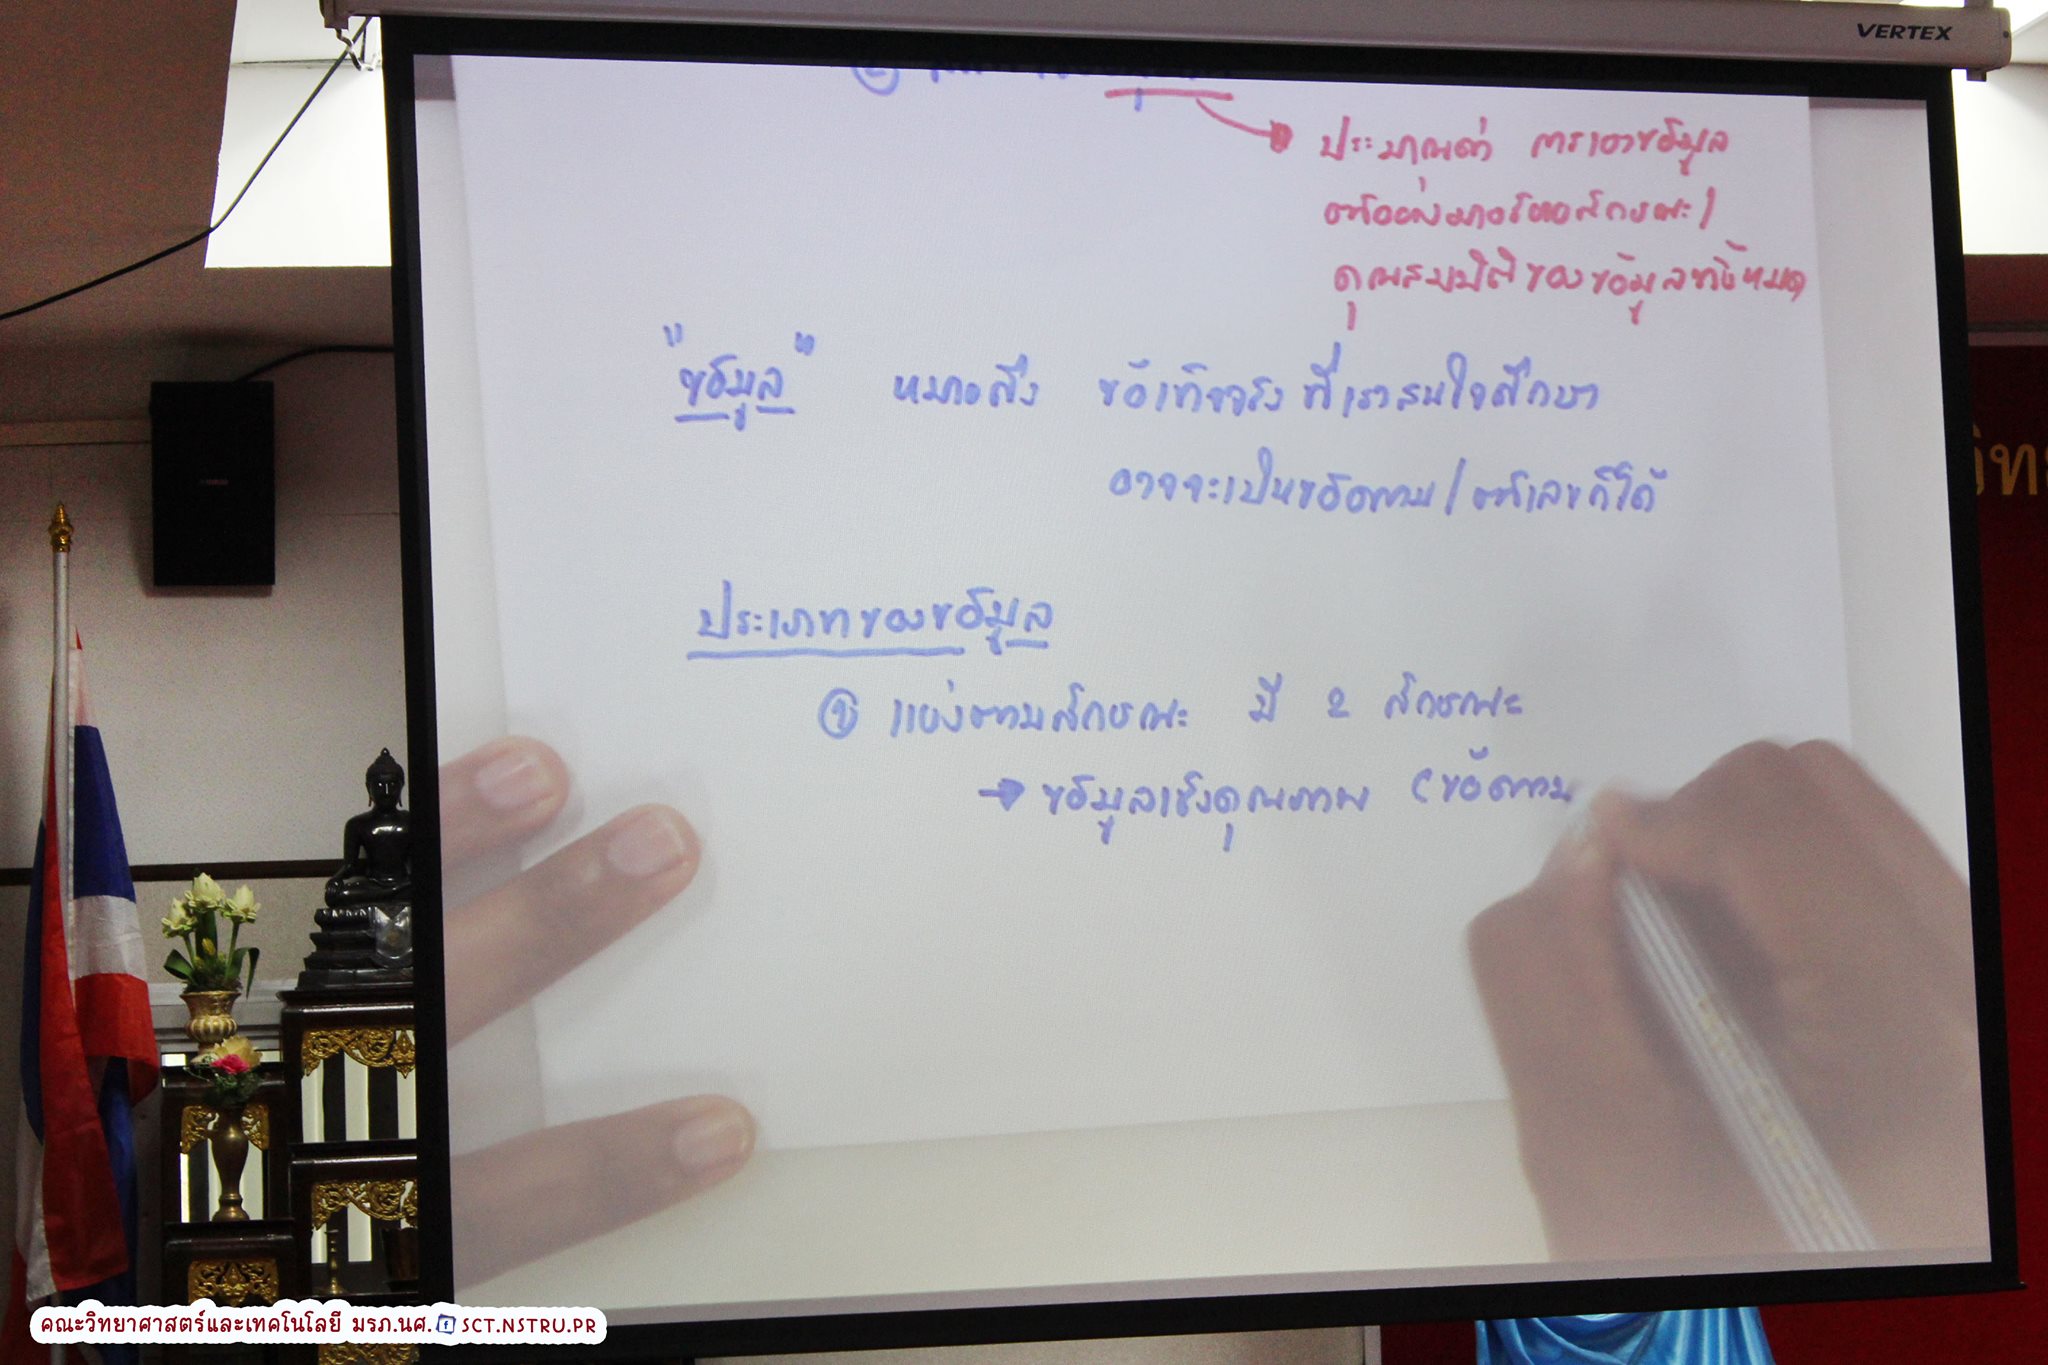 VERTEX
ประมาณค่า การเอาข้อมูล
ตัวอย่างมาอธิบายลักษณะ/
คุณสมบัติของข้อมูลทั้งหมด
"ข้อมูล" หมายถึง ข้อเท็จจริงที่เราสนใจศึกษา
อาจจะเป็นข้อความ/ตัวเลขก็ได้
ประเภทของข้อมูล
① แบ่งตามลักษณะ มี 2 ลักษณะ
→ ข้อมูลเชิงคุณภาพ (ข้อความ
คณะวิทยาศาสตร์และเทคโนโลยี มรภ.นศ. SCT.NSTRU.PR